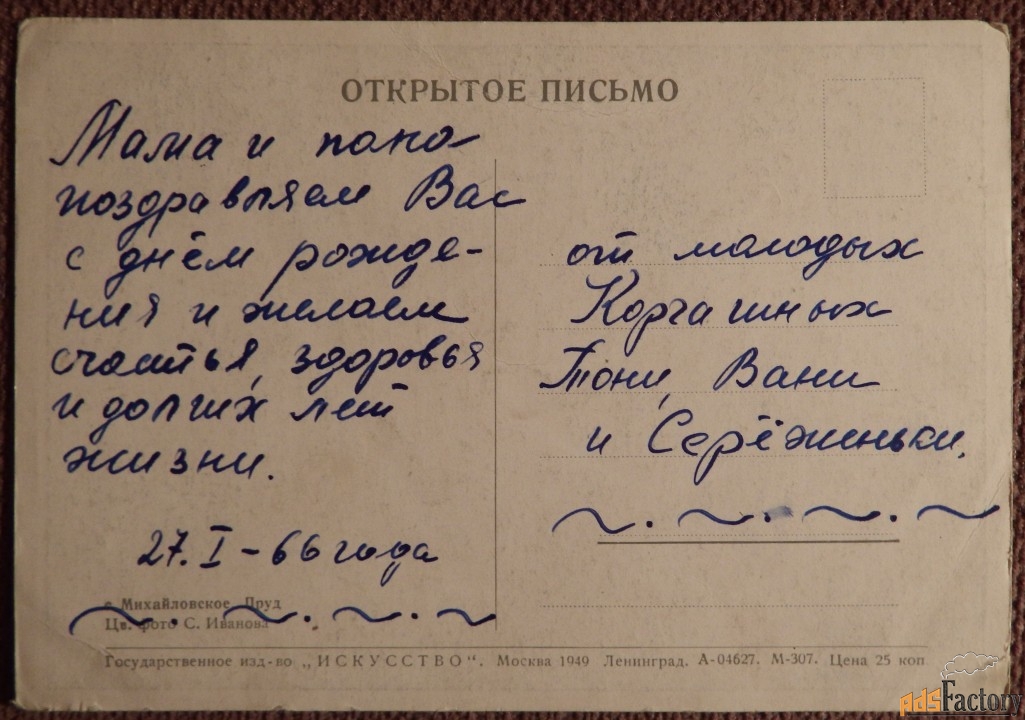 ОТКРЫТОЕ ПИСЬМО
Мама и папа
поздравляем Вас
с днём рожде-
ния и желаем
счастья, здоровья
и долгих лет
жизни.
27. I - 66 года
от молодых
Корчагиных
Тони, Вани
и Серёженьки.
с Михайловское. Пруд
Цв. фото С. Иванова
Государственное изд-во „ИСКУССТВО". Москва 1949 Ленинград. А-04627. М-307. Цена 25 коп
AdsFactory